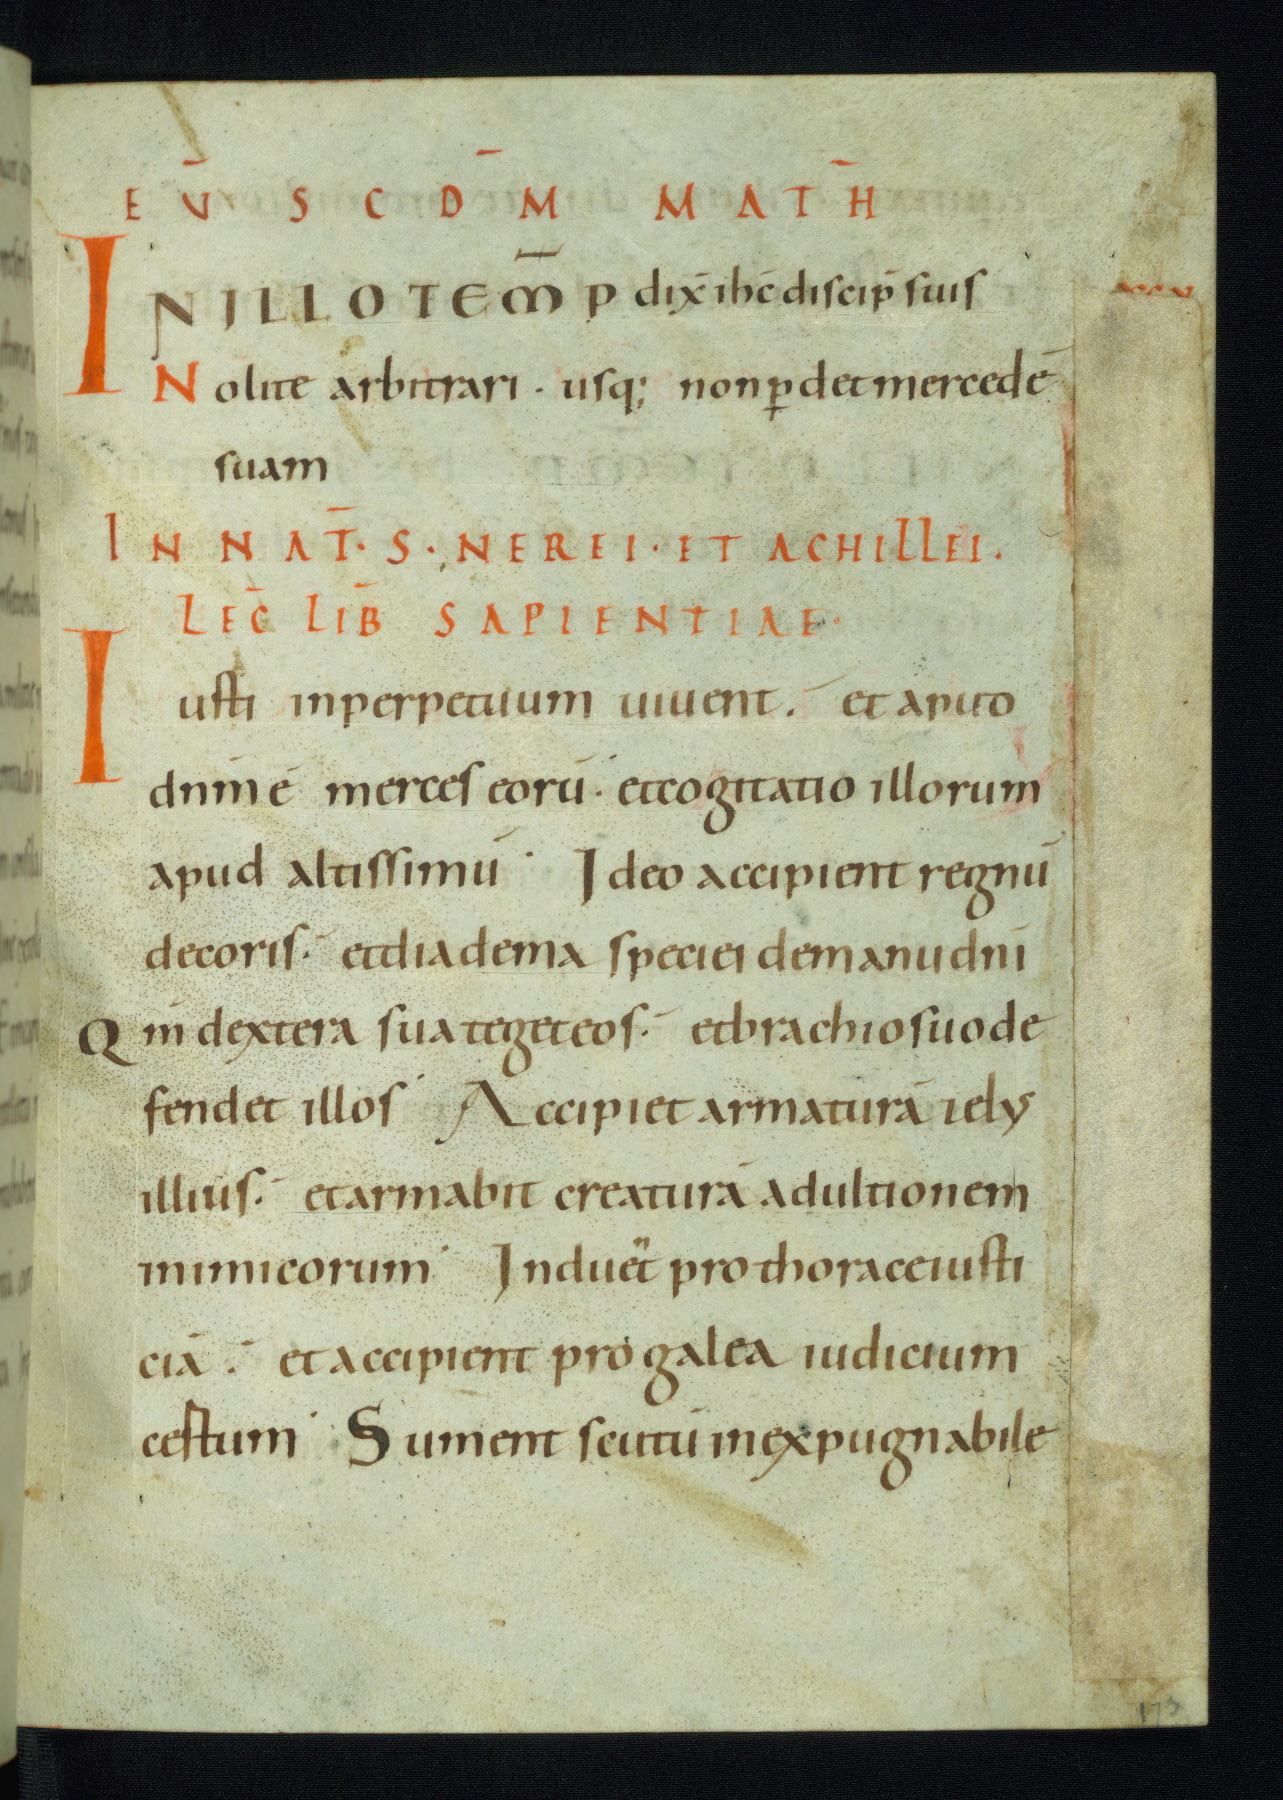 EV̄ SCD̄M MATH̄
IN ILLO TEM̄P dix̄ ihc̄ discip̄ suis
Nolite arbitrari . usq; non ꝑdet mercedē
suam
IN NAT̄ . S . NEREI . ET ACHILLEI .
LEC̄ LIB̄ SAPIENTIAE .
Iusti inperpetuum uiuent . et aput
dnm̄ ē merces eorū . et cogitatio illorum
apud altissimū . Ideo accipient regnū
decoris . et diadema speciei de manu dnī
Qm̄ dextera sua teget eos . et brachio suo de
fendet illos . Accipiet armaturā zelus
illius . et armabit creaturā adultionem
inimicorum . Induet pro thorace iusti
ciā . et accipient pro galea iudicium
certum . Sument scutū inexpugnabile
173